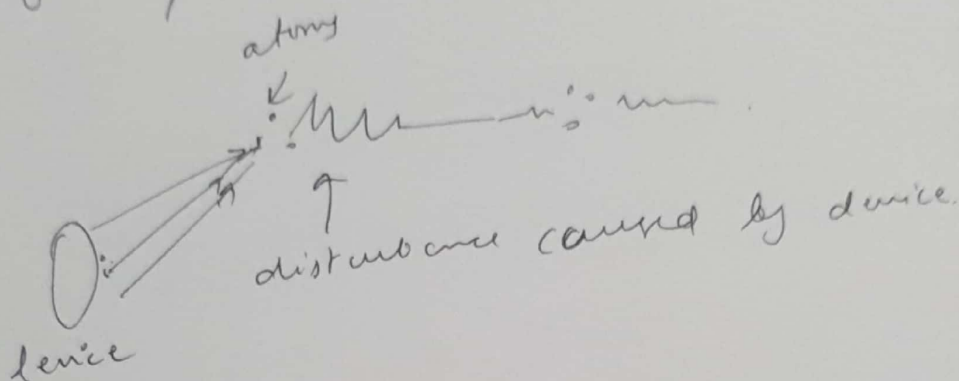 atoms
disturbance caused by device.
device